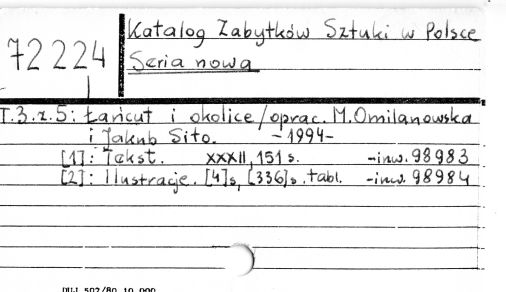 72224
Katalog Zabytków Sztuki w Polsce
Seria nowa
T.3.z.5: Łańcut i okolice/oprac. M.Omilanowska
i Jakub Sito. -1994-
[1]: Tekst. XXXII, 151 s. -inw. 98983
[2]: Ilustracje. [4]s, [336]s. tabl. -inw. 98984